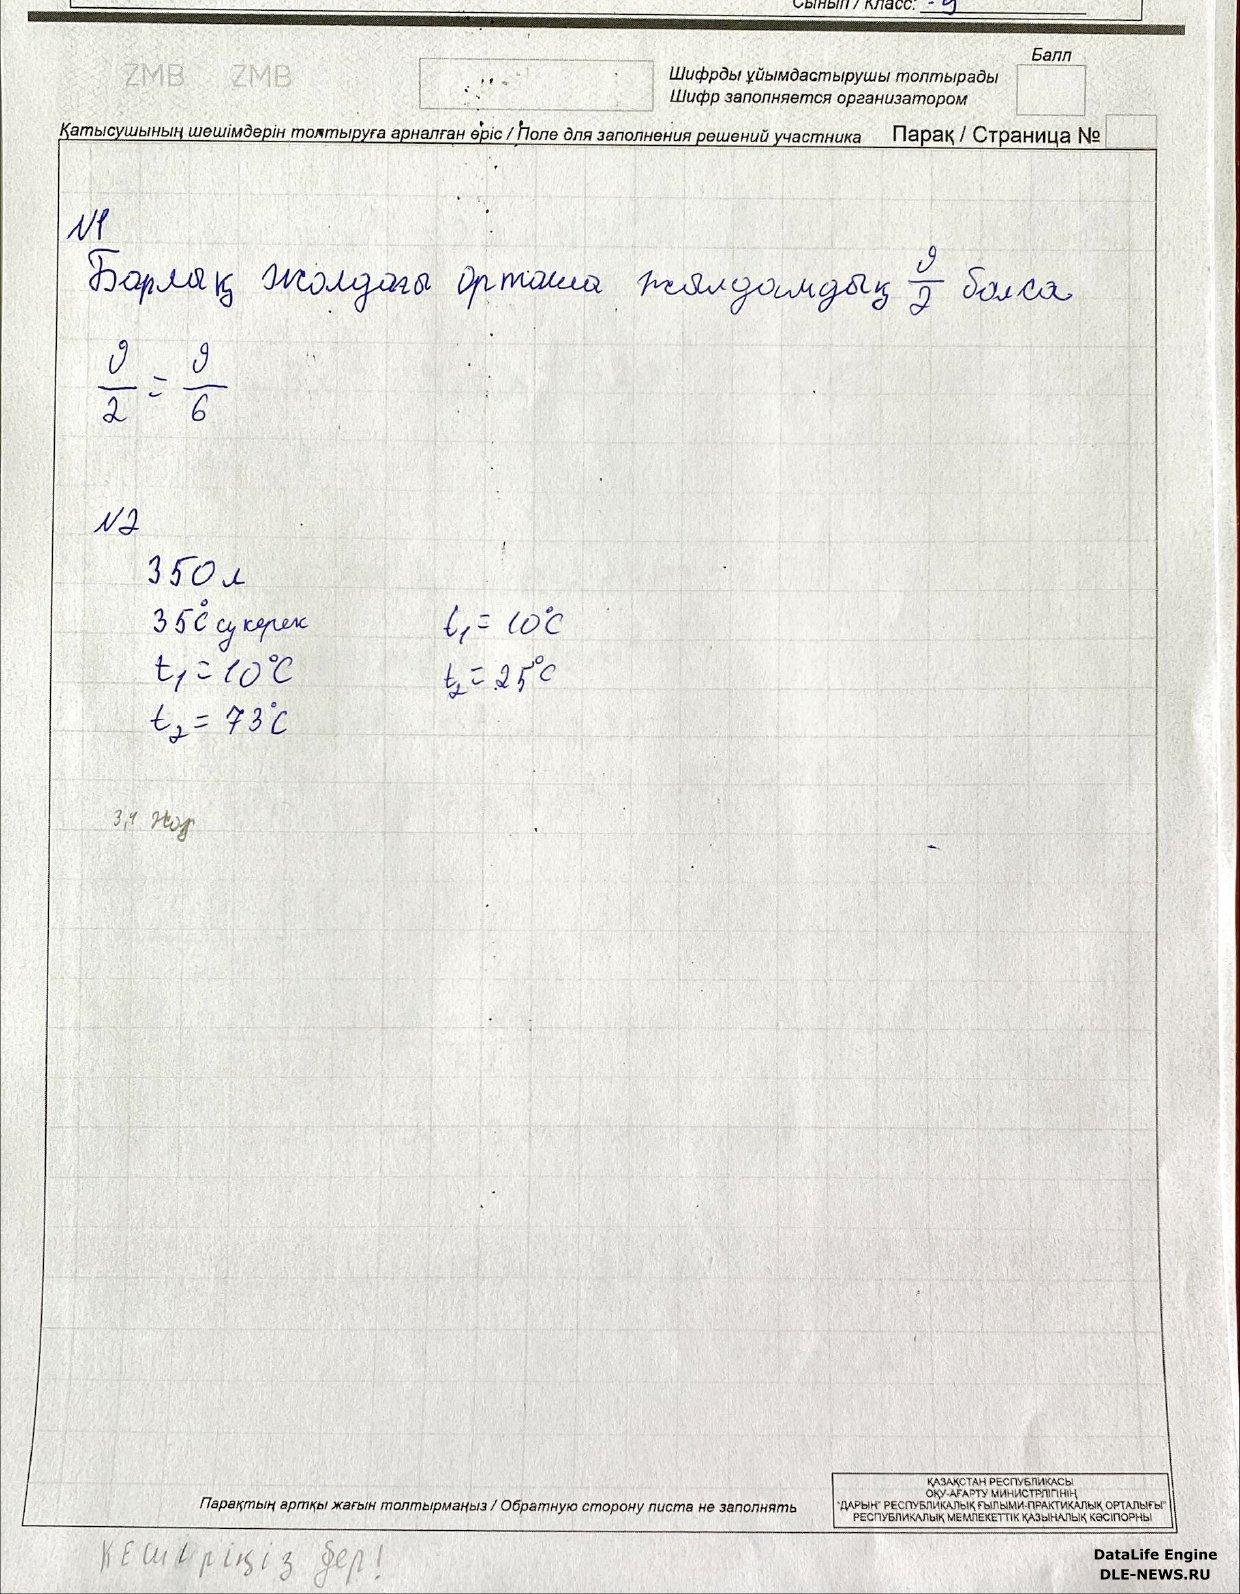 Сынып / Класс: 9
ZMB ZMB
Балл
Шифрды ұйымдастырушы толтырады
Шифр заполняется организатором
Қатысушының шешімдерін толтыруға арналған өріс / Поле для заполнения решений участника Парақ / Страница №
№1
Барлық жолдағы орташа жылдамдық ϑ/2 болса
ϑ/2 = ϑ/6
№2
350 л
35°C су керек t₁ = 10°C
t₁ = 10°C t₂ = 25°C
t₂ = 73°C
3,4 жоқ
ҚАЗАҚСТАН РЕСПУБЛИКАСЫ
ОҚУ-АҒАРТУ МИНИСТРЛІГІНІҢ
"ДАРЫН" РЕСПУБЛИКАЛЫҚ ҒЫЛЫМИ-ПРАКТИКАЛЫҚ ОРТАЛЫҒЫ"
РЕСПУБЛИКАЛЫҚ МЕМЛЕКЕТТІК ҚАЗЫНАЛЫҚ КӘСІПОРНЫ
Парақтың артқы жағын толтырмаңыз / Обратную сторону листа не заполнять
КЕШІРІҢІЗ
DataLife Engine
DLE-NEWS.RU